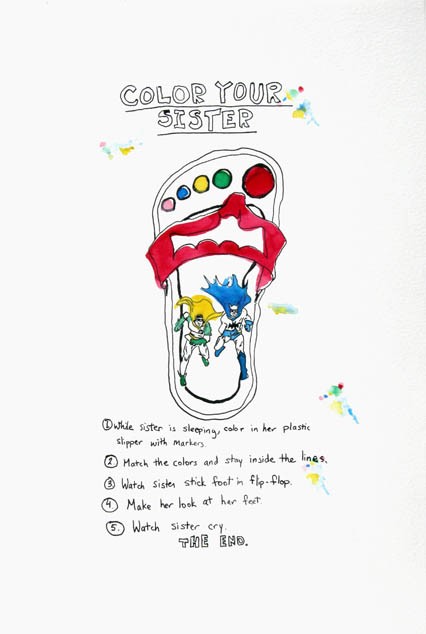 COLOR YOUR
SISTER
① While sister is sleeping, color in her plastic
slipper with markers.
② Match the colors and stay inside the lines.
③ Watch sister stick foot in flip-flop.
④ Make her look at her feet.
⑤. Watch sister cry.
THE END.